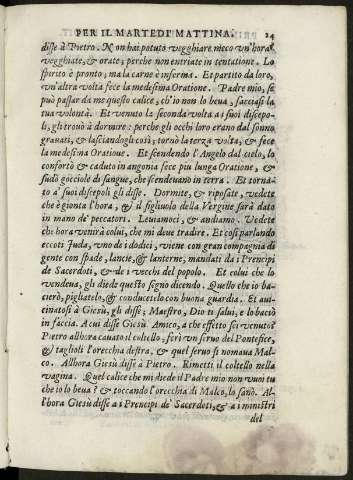 PER IL MARTEDI MATTINA. 24
disse à Pietro. Non hai potuto vegghiare meco un'hora?
vegghiate, & orate; perche non entriate in tentatione. Lo
spirito è pronto; ma la carne è inferma. Et partito da loro,
un'altra volta fece la medesima Oratione. Padre mio, se
può passar da me questo calice, ch'io non lo beua, facciasi la
tua volontà. Et venuto la seconda volta a i suoi discepo-
li, gli trouò à dormire: perche gli occhi loro erano dal sonno
grauati, & lasciandogli così; tornò la terza volta, & fece
la medesima Oratione. Et scendendo l'Angelo dal cielo, lo
confortò & caduto in angonia fece piu lunga Oratione, &
sudò gocciole di sangue, che scendeuano in terra. Et torna-
to a' suoi discepoli gli disse. Dormite, & riposate, vedete
che è gionta l'hora, & il figliuolo della Vergine sarà dato
in mano de' peccatori. Leuiamoci, & andiamo. Vedete
che hora venirà colui, che mi deue tradire. Et cosi parlando
eccoti Juda, vno de i dodici, viene con gran compagnia di
gente con spade, lancie, & lanterne, mandati da i Prencipi
de Sacerdoti, & de i vecchi del popolo. Et colui che lo
vendeua, gli diede questo segno dicendo. Quello che io ba-
cierò, pigliatelo, & conducetelo con buona guardia. Et aui-
cinatosi à Giesù, gli disse; Maestro, Dio ti salui, e lo baciò
in faccia. A cui disse Giesù. Amico, a che effetto sei venuto?
Pietro allhora cauato il coltello, ferì vn seruo del Pontefice,
& tagliolì l'orecchia destra, & quel seruo si nomaua Mal-
co. Allhora Giesù disse à Pietro. Rimetti il coltello nella
vagina. Quel calice che mi diede il Padre mio non vuoi tu
che io lo beua? & toccando l'orecchia di Malco, lo sanò. Al-
l'hora Giesù disse a i Prencipi de' Sacerdoti, & a i ministri
del